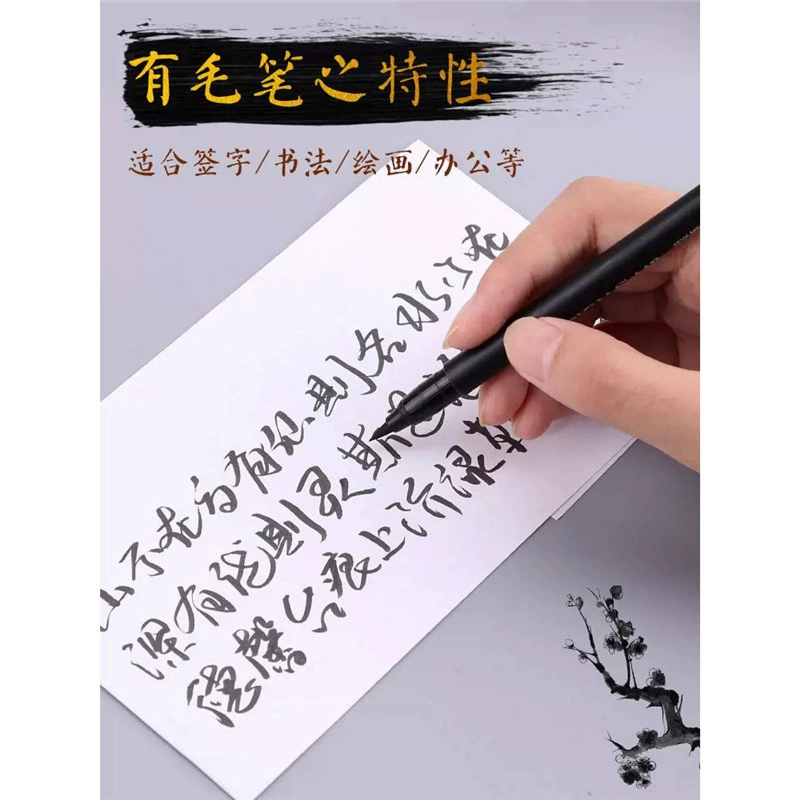 有毛笔之特性
适合签字/书法/绘画/办公等
山不在高有仙则名水不在
深有龙则灵斯是
德馨苔痕上阶绿